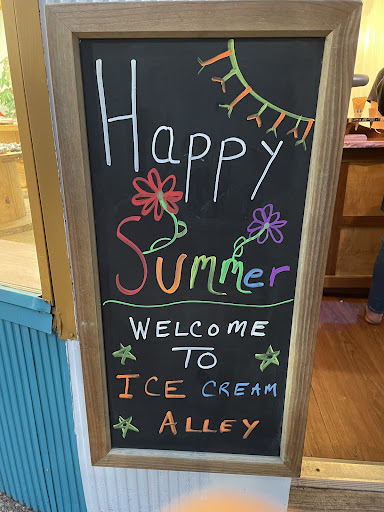 Happy
Summer
WELCOME
TO
ICE CREAM
ALLEY